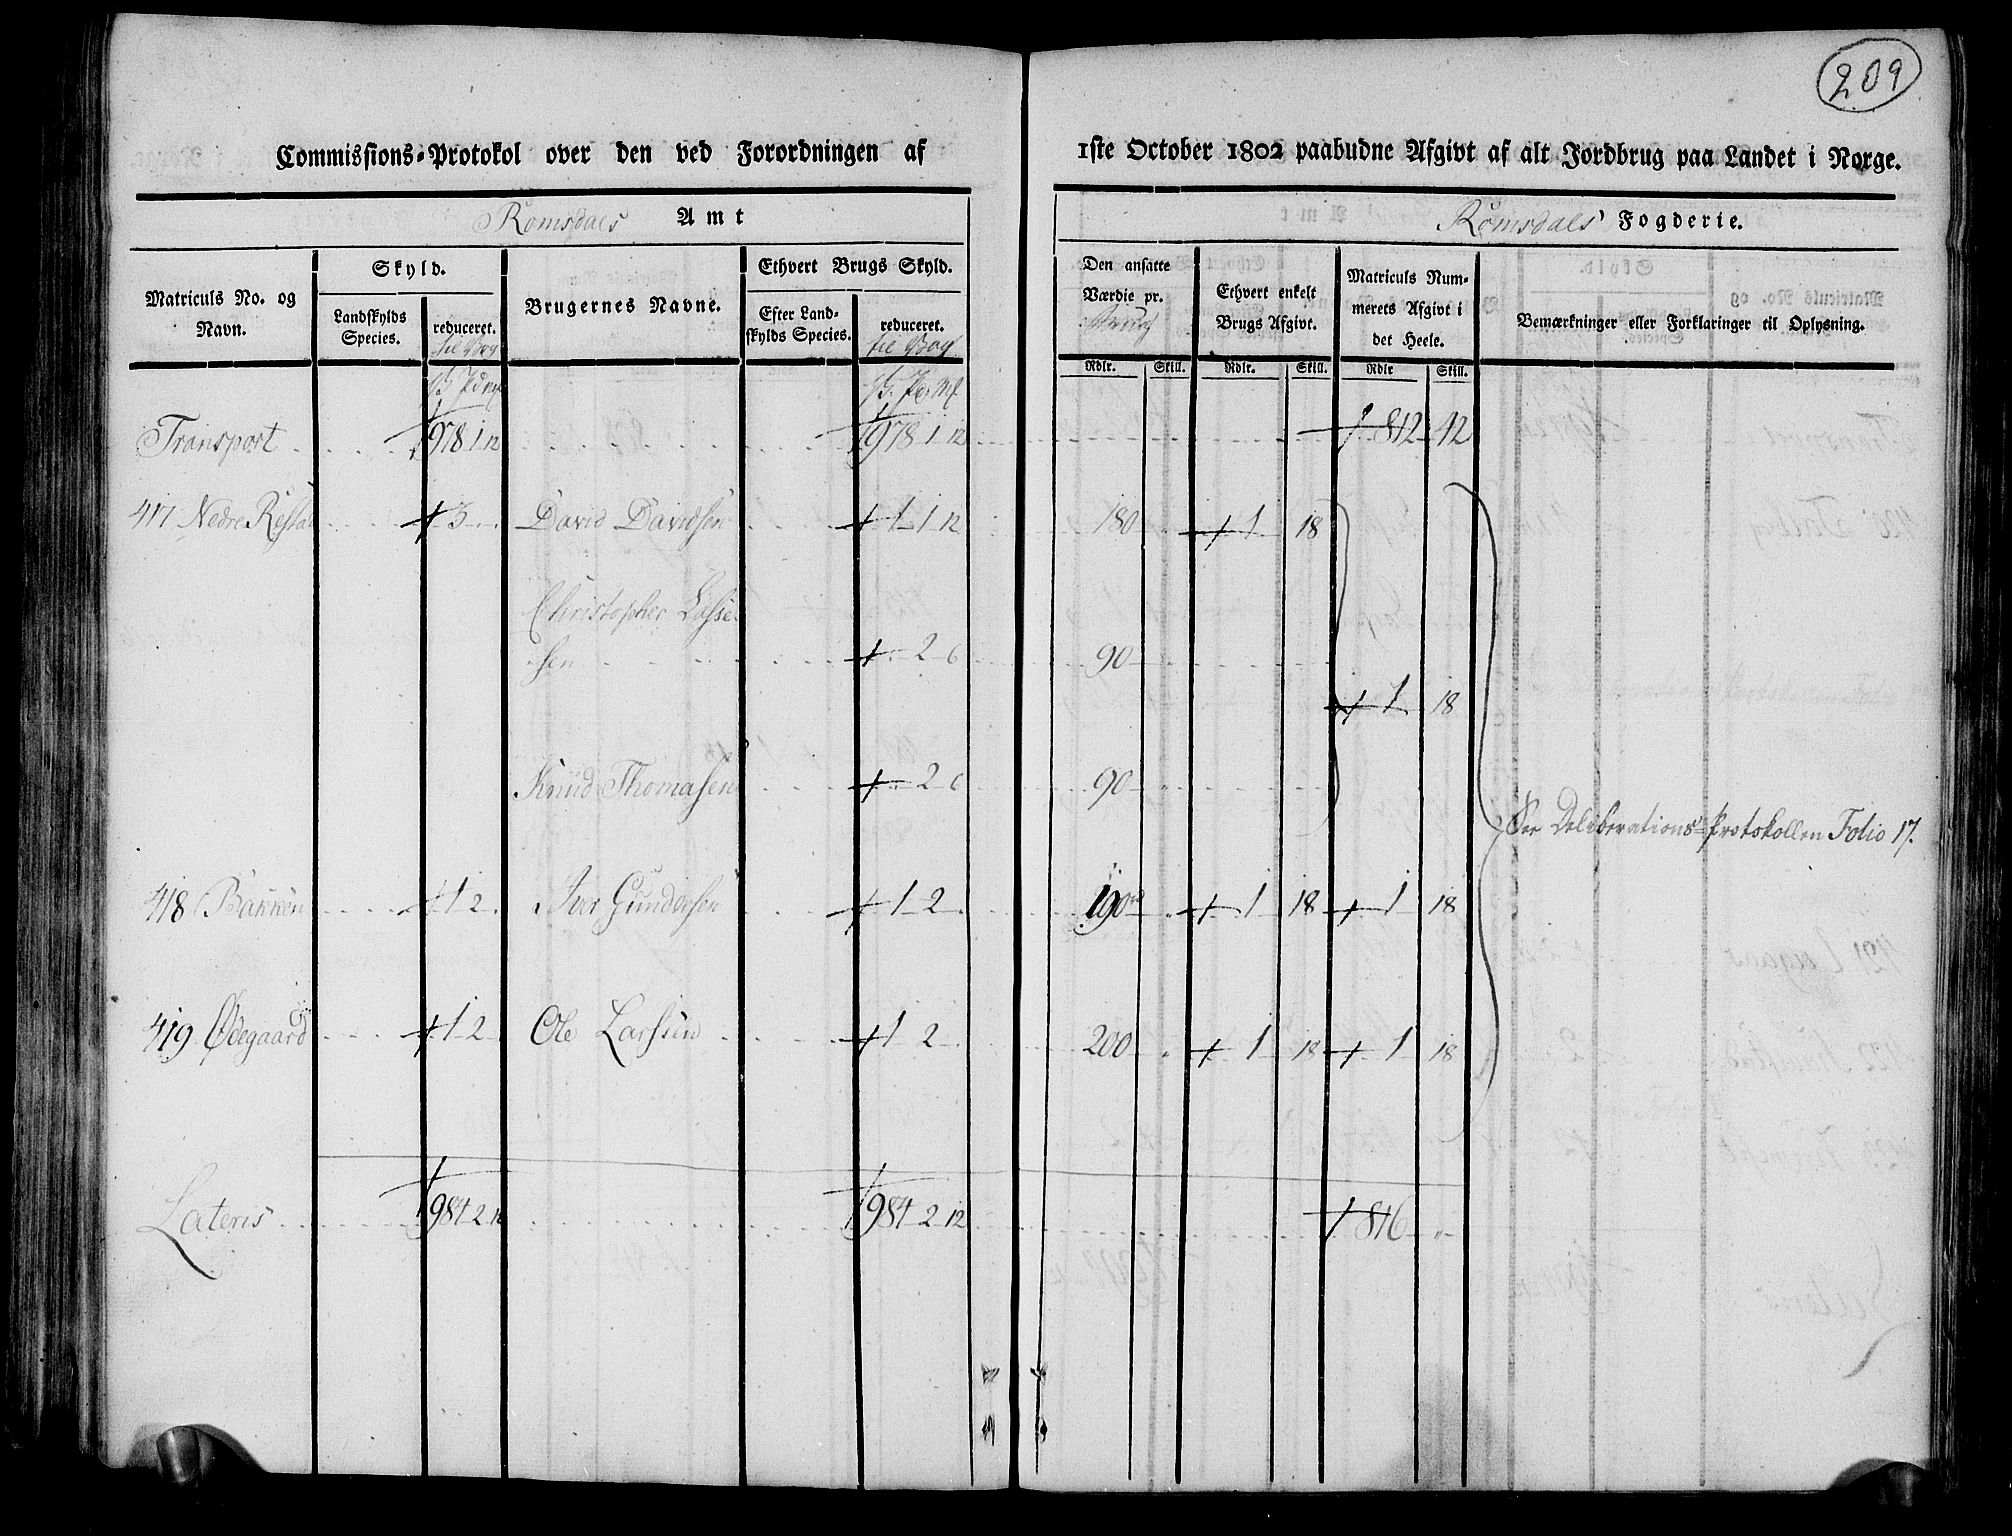 209
Commissions-Protokol over den ved Forordningen af 1ste October 1802 paabudne Afgivt af alt Jordbrug paa Landet i Norge.
Romsdals Amt
Romsdals Fogderie.
Matriculs No. og Navn.
Skyld.
Landskylds Species.
reduceret.
til Vog
Brugernes Navne.
Ethvert Brugs Skyld.
Efter Landskylds Species.
reduceret.
til Vog
Den ansatte Værdie pr.
Brug
Ethvert enkelt Brugs Afgivt.
Matriculs Nummerets Afgivt i det Heele.
Bemærkninger eller Forklaringer til Oplysning.
Rdlr. Skill. Rdlr. Skill. Rdlr Skill.
Transport 978 1 12 978 1 12 812 42
417 Nedre Kristad 3 David Davidsen 1 1 12 180 1 18
Christopher Lasse-
sen 2 6 90
1 18
Knud Thomasen 2 6 90
See Deliberations-Protokollen Folio 17.
418 Bakken 1 2 Iver Gundersen 1 2 190 1 18 1 18
419 Ødegaard 1 2 Ole Larssen 1 2 200 1 18 1 18
Lateris 984 2 12 984 2 12 816